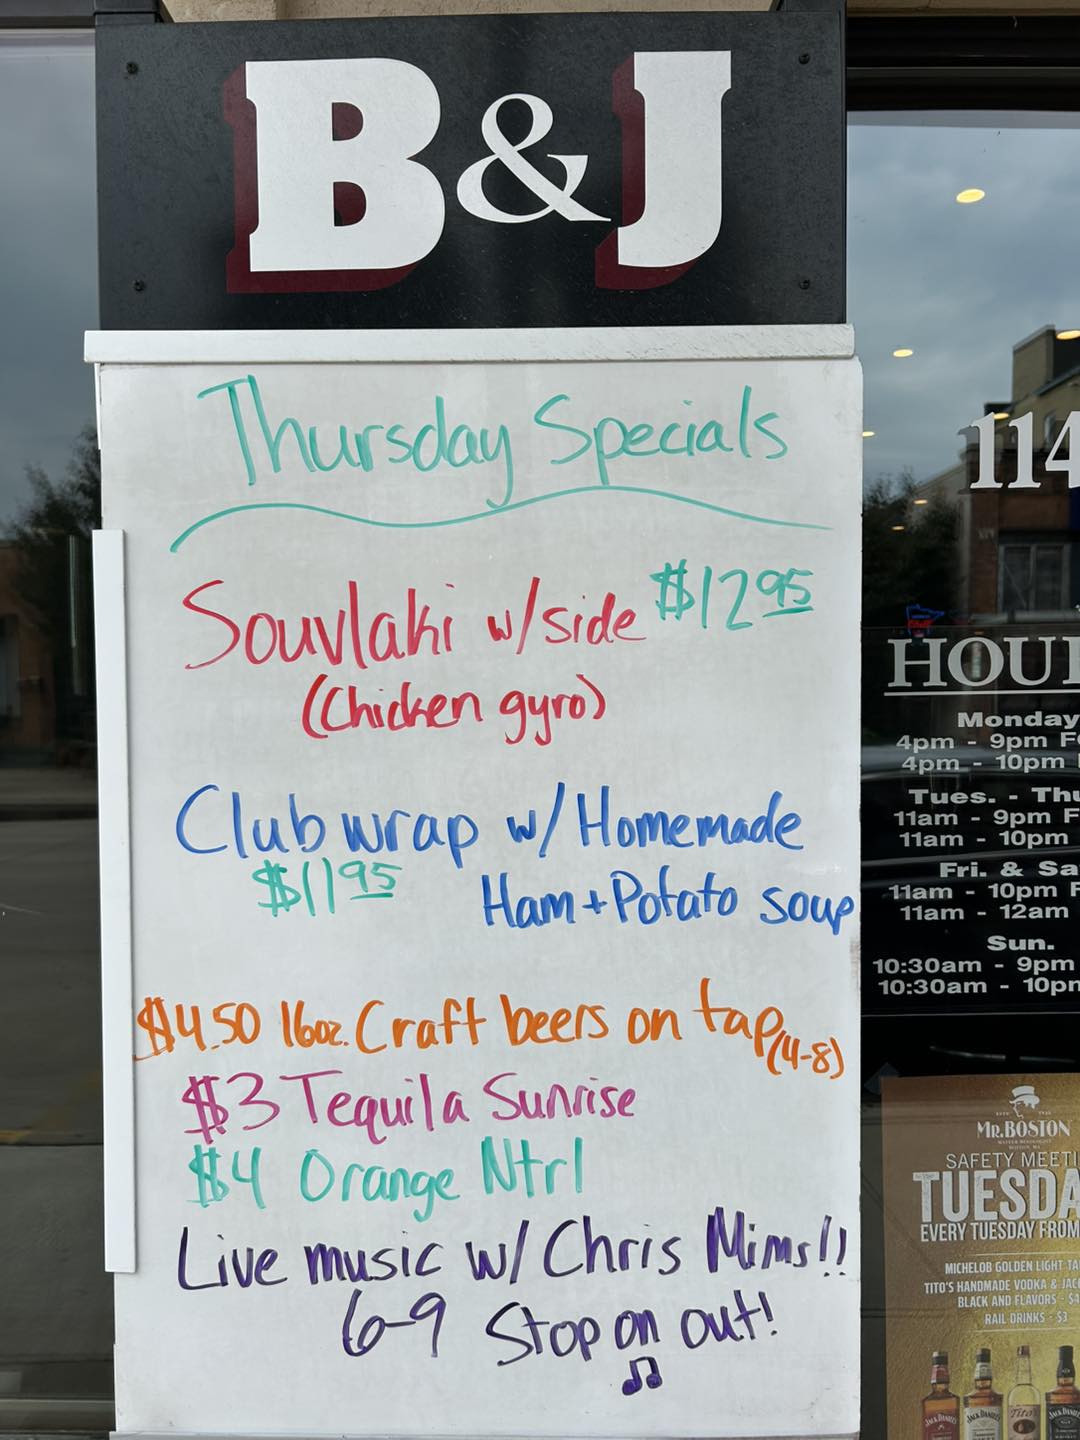 B&J
Thursday Specials
Souvlaki w/side $12 95
(Chicken gyro)
Club wrap w/Homemade
$11 95 Ham+Potato soup
$4.50 16oz. Craft beers on tap (4-8)
$3 Tequila Sunrise
$4 Orange Ntrl
Live music w/ Chris Mims!!
6-9 Stop on out!
114
HOU
Monday
4pm - 9pm F
4pm - 10pm
Tues. - Thu
11am - 9pm F
11am - 10pm
Fri. & Sa
11am - 10pm F
11am - 12am
Sun.
10:30am - 9pm
10:30am - 10pm
MR. BOSTON
SAFETY MEETI
TUESDA
EVERY TUESDAY FROM
MICHELOB GOLDEN LIGHT TA
TITO'S HANDMADE VODKA & JAC
BLACK AND FLAVORS - $4
RAIL DRINKS - $3